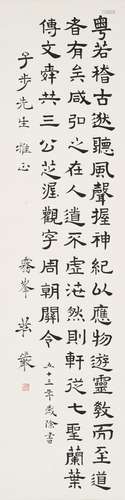 粤若稽古逖聽風聲握神紀以應物遊靈教而至道
者有矣咸弘之在人遺不虛往然則軒從七聖蘭葉
傳文舜共三公芝渥觀字周朝關令
五十二年歲除書
子步先生雅正
霧峯